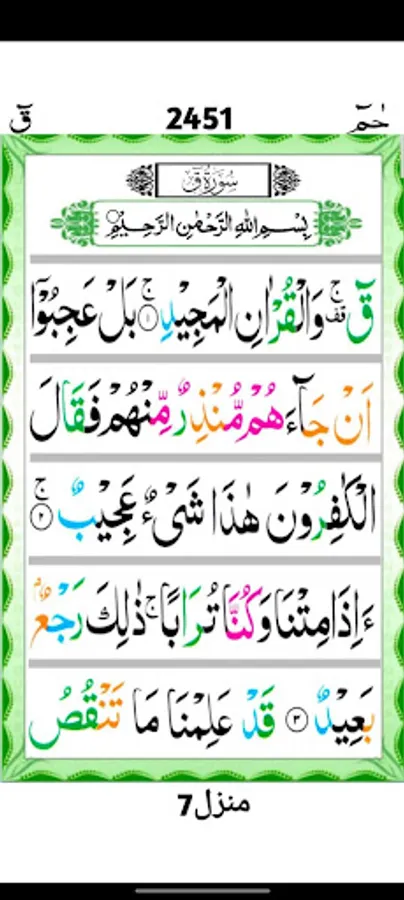 قٓ 2451 حٰمٓ
سُوْرَةُ قٓ
بِسْمِ اللهِ الرَّحْمٰنِ الرَّحِيْمِ
قٓ ۚ قف وَالْقُرْاٰنِ الْمَجِيْدِ ۚ ۝۱ بَلْ عَجِبُوْۤا
اَنْ جَآءَهُمْ مُّنْذِرٌ مِّنْهُمْ فَقَالَ
الْكٰفِرُوْنَ هٰذَا شَیْءٌ عَجِيْبٌ ۚ ۝۲
ءَاِذَا مِتْنَا وَكُنَّا تُرَابًا ۚ ذٰلِكَ رَجْعٌۢ
بَعِيْدٌ ۝۳ قَدْ عَلِمْنَا مَا تَنْقُصُ
منزل 7